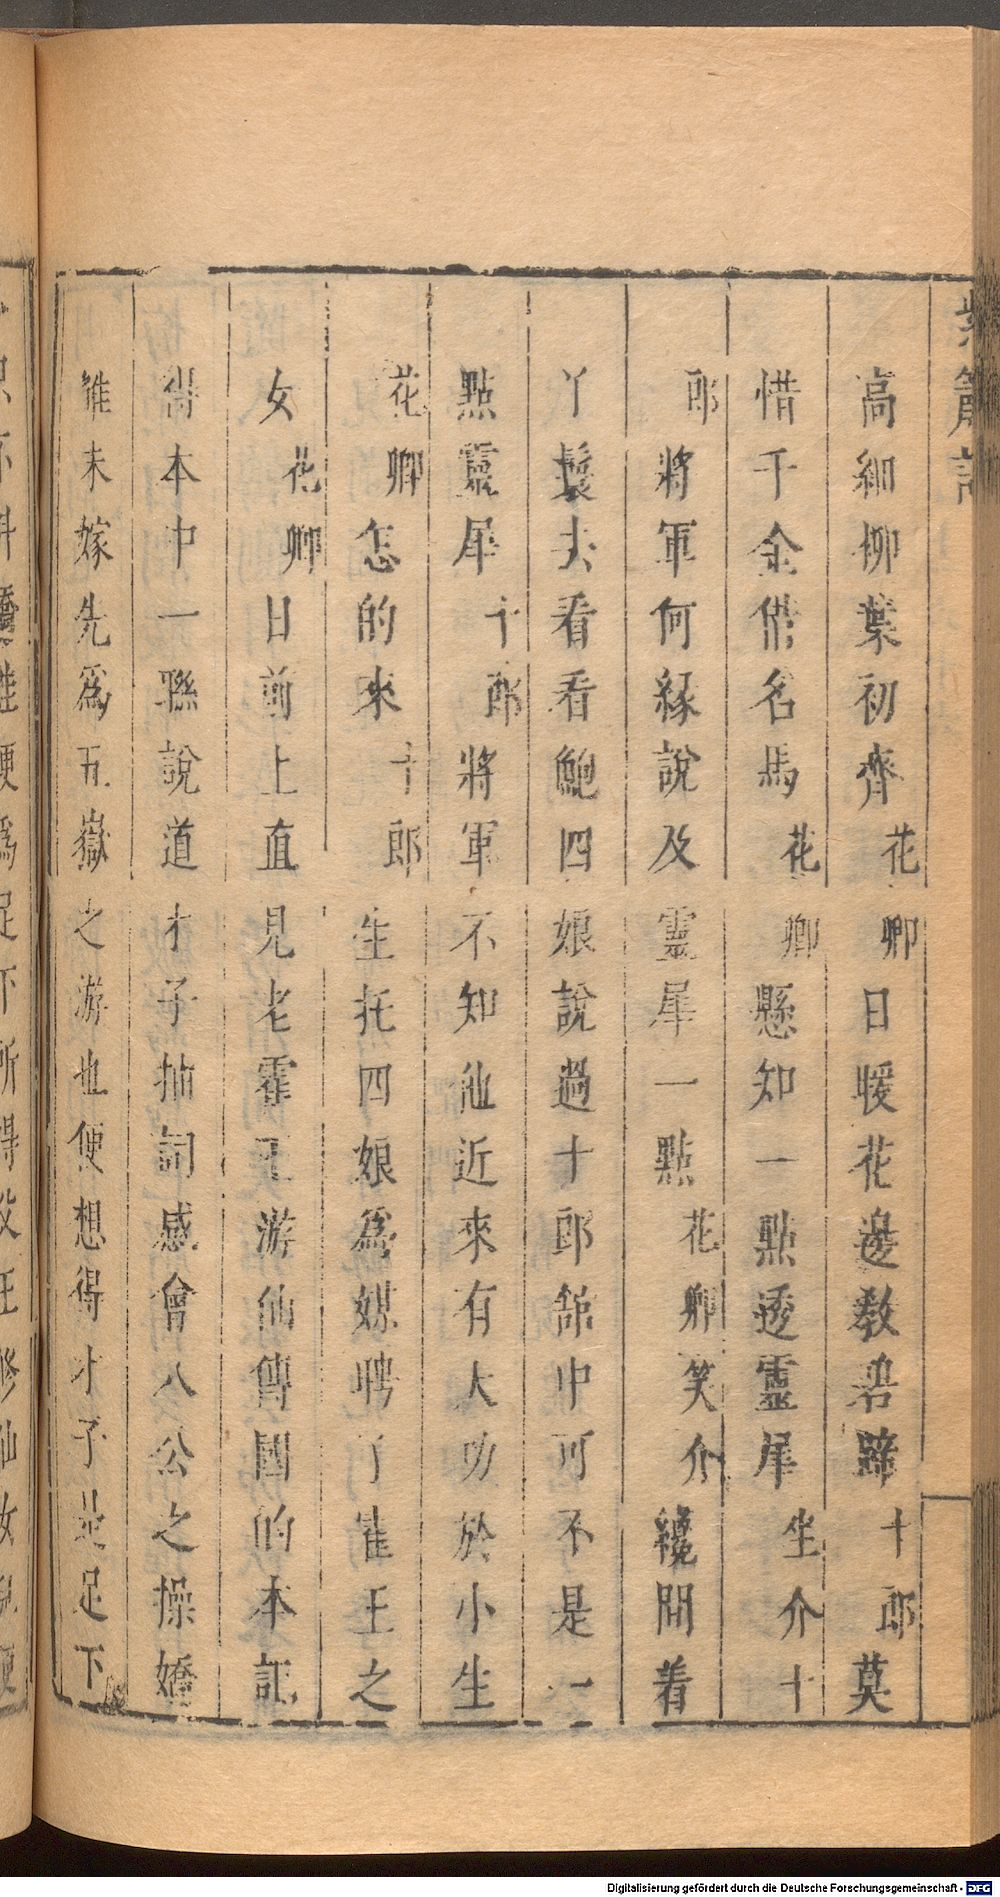 紫簫記
高細柳葉初齊花卿日暖花邊教碧蹄十郎莫
惜千金償名馬花卿懸知一點透靈犀坐介十
郎將軍何緣說及靈犀一點花卿笑介纔間着
丫鬟去看看鮑四娘說過十郎舘中可不是一
點靈犀十郎將軍不知他近來有大功於小生
花卿怎的來十郎生托四娘為媒聘了霍王之
女花卿日前上直見老霍王游仙傳國的本詞
得本中一聯說道才子抽詞感會八公之操嬌
雖未嫁先為五嶽之游也便想得才子是足下
Digitalisierung gefördert durch die Deutsche Forschungsgemeinschaft - DFG